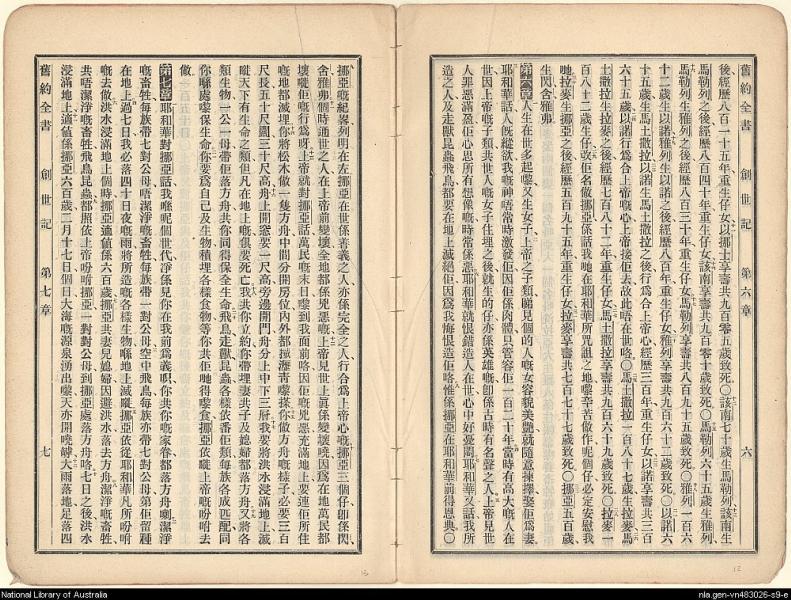 後經歷八百一十五年重生仔女以挪士享壽共九百零五歲致死〇該南七十歲生馬勒列該南生
馬勒列之後經歷八百四十年重生仔女該南享壽共九百零十歲致死〇馬勒列六十五歲生雅列
馬勒列生雅列之後經歷八百三十年重生仔女馬勒列享壽共八百九十五歲致死〇雅列一百六
十二歲生以諾雅列生以諾之後經歷八百年重生仔女雅列享壽共九百六十二歲致死〇以諾六
十五歲生馬土撒拉以諾生馬土撒拉之後行為合上帝心經歷三百年重生仔女以諾享壽共三百
六十五歲以諾行為合上帝嘅心上帝接佢去故此唔在世咯〇馬土撒拉一百八十七歲生拉麥馬
土撒拉生拉麥之後經歷七百八十二年重生仔女馬土撒拉享壽共九百六十九歲致死〇拉麥一
百八十二歲生仔改佢名做挪亞係話我哋在耶和華所咒詛之地嚟辛苦做作呢個仔必定安慰我
哋拉麥生挪亞之後經歷五百九十五年重生仔女拉麥享壽共七百七十七歲致死〇挪亞五百歲
生閃含雅弗
第六章人生在世多起嚟又生女子上帝之子類睇見個的人嘅女容貌美艷就隨意揀擇娶佢為妻
耶和華話人旣縱欲我嘅神唔常時激發佢因佢係肉體只管容佢一百二十年當時有高大嘅人在
世因上帝嘅子類共世人嘅女子住埋之後就生的仔亦係英雄嘅卽係古時有名聲之人上帝見世
人罪惡滿盈佢心思所有想像嘅時常係惡耶和華就恨錯造人在世心中好憂悶耶和華又話我所
造之人及走獸昆蟲飛鳥都要在地上滅絕佢因為我悔恨造佢咯惟係挪亞在耶和華前得恩典〇
舊約全書 創世記 第六章 六
挪亞嘅紀畧列明在左挪亞在世係善義之人亦係完全之人行合為上帝心嘅挪亞三個仔卽係閃
含雅弗個時通世之人在上帝前變壞全地都係兇惡嘅上帝見世上眞係變壞曉因為在地萬民都
壞曬佢嘅行為呀上帝就對挪亞話萬民嘅末日嚟到我面前咯因佢嘅兇惡充滿地上要連佢所住
嘅地都滅埋你將松木做一隻方舟中間分開房位內外都搽瀝青嚟葢你做方舟嘅樣子必要三百
尺長五十尺闊三十尺高舟上開窻要一尺高旁邊開門舟分上中下三層我要將洪水浸滿地上滅
曬天下有生命之類但凡在地上嘅俱要死亡我共你立約你帶埋妻共子及媳婦都落方舟又將各
類生物一公一母帶佢落方舟共你同得保全生命飛鳥走獸昆蟲各樣依番佢類每族各成匹配同
你嚟處嚟保生命你要為自己及生物積埋各樣食物等你共佢哋得嚟食挪亞依曬上帝嘅吩咐去
做
第七章耶和華對挪亞話我喺呢個世代淨係見你在我前為義呮你共你嘅家眷都落方舟喇潔淨
嘅畜牲每族帶七對公母唔潔淨嘅畜牲每族帶一對公母空中飛鳥每族亦帶七對公母第佢留種
在地上過七日我必落四十日夜嘅雨將所造嘅各樣生物喺地上滅曬挪亞依從耶和華凡所吩咐
嘅去做洪水浸滿地上個時挪亞適值係六百歲挪亞共妻兒媳婦因避洪水落去方舟潔淨嘅畜牲
共唔潔淨嘅畜牲飛鳥昆蟲都照依上帝吩咐挪亞一對對公母到挪亞處落方舟咯七日之後洪水
浸滿地上適值係挪亞六百歲二月十七日個日大海嘅源泉湧出嚟天亦開曉縫大雨落地足落四
舊約全書 創世記 第七章 七
13
12
National Library of Australia
nla.gen-vn483026-s9-e